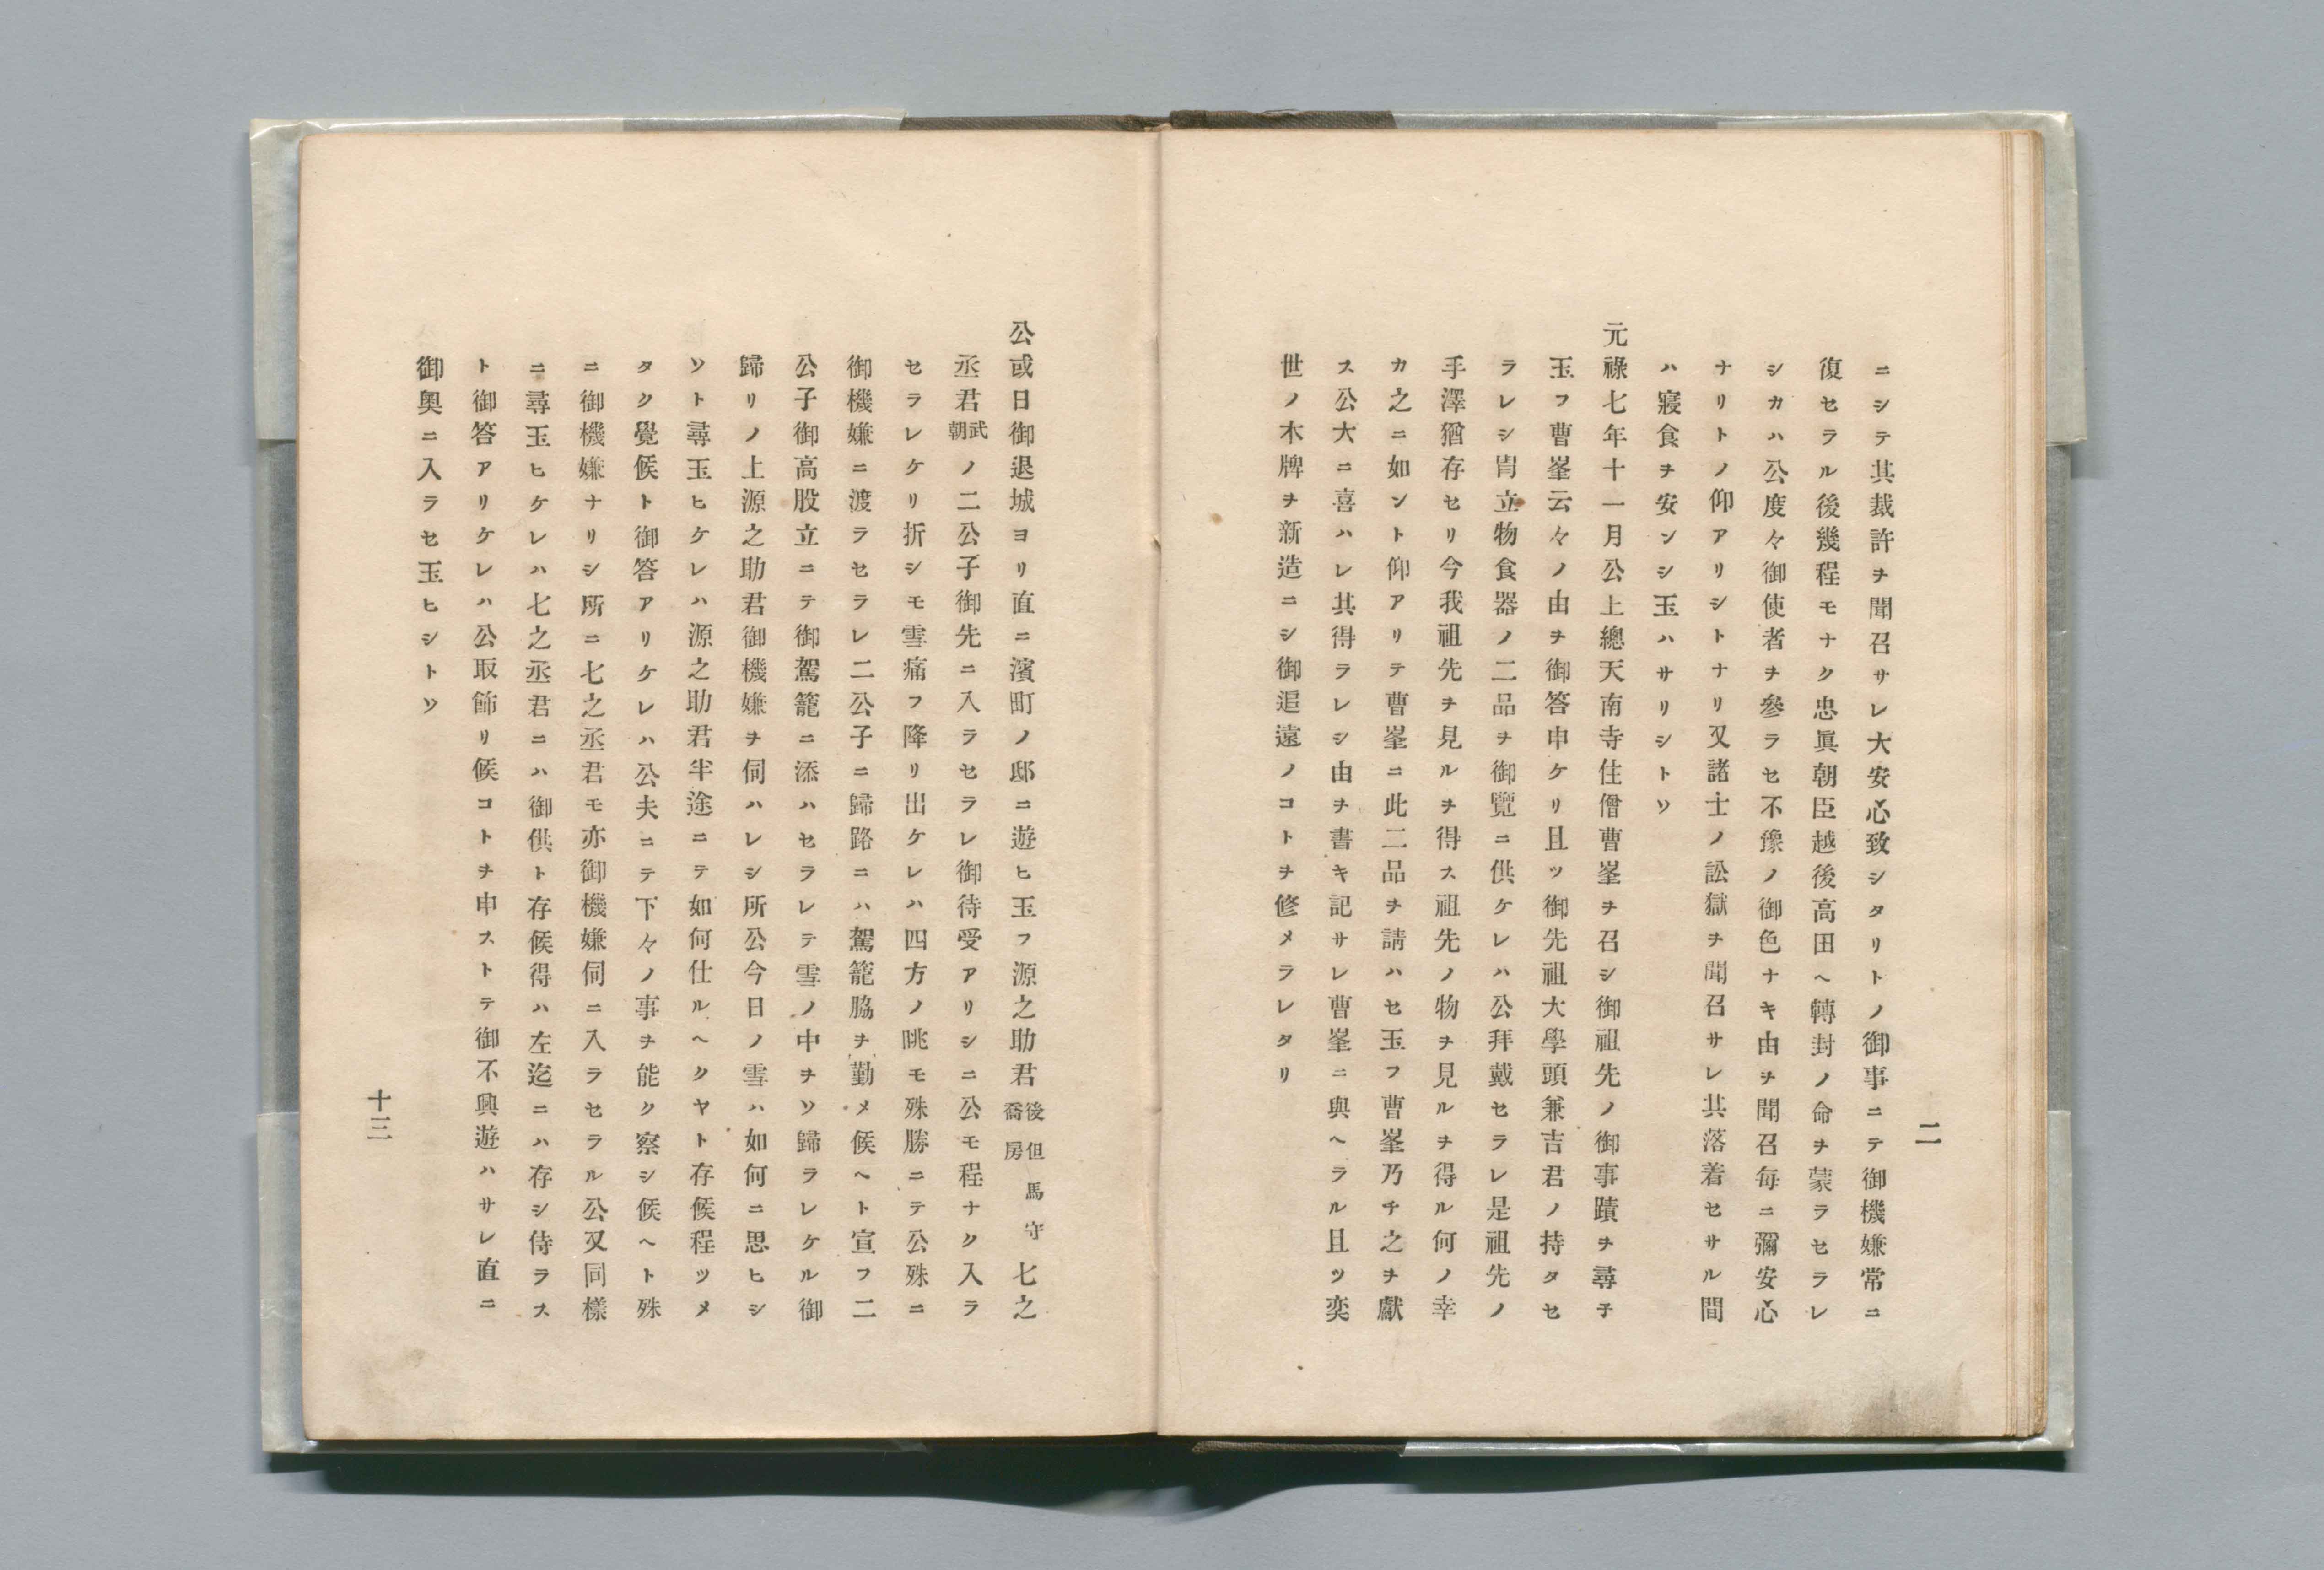 二
ニシテ其裁許ヲ聞召サレ大安心致シタリトノ御事ニテ御機嫌常ニ
復セラル後幾程モナク忠眞朝臣越後高田ヘ轉封ノ命ヲ蒙ラセラレ
シカハ公度々御使者ヲ參ラセ不豫ノ御色ナキ由ヲ聞召毎ニ彌安心
ナリトノ仰アリシトナリ又諸士ノ訟獄ヲ聞召サレ其落着セサル間
ハ寢食ヲ安ンシ玉ハサリシトソ
元祿七年十一月公上總天南寺住僧曹峯ヲ召シ御祖先ノ御事蹟ヲ尋子
玉フ曹峯云々ノ由ヲ御答申ケリ且ツ御先祖大學頭兼吉君ノ持タセ
ラレシ冑立物食器ノ二品ヲ御覽ニ供ケレハ公拜戴セラレ是祖先ノ
手澤猶存セリ今我祖先ヲ見ルヲ得ス祖先ノ物ヲ見ルヲ得ル何ノ幸
カ之ニ如ント仰アリテ曹峯ニ此二品ヲ請ハセ玉フ曹峯乃チ之ヲ獻
ス公大ニ喜ハレ其得ラレシ由ヲ書キ記サレ曹峯ニ與ヘラル且ツ奕
世ノ木牌ヲ新造ニシ御追遠ノコトヲ修メラレタリ
公或日御退城ヨリ直ニ濱町ノ邸ニ遊ヒ玉フ源之助君後但馬守喬房七之
丞君武朝ノ二公子御先ニ入ラセラレ御待受アリシニ公モ程ナク入ラ
セラレケリ折シモ雪痛フ降リ出ケレハ四方ノ眺モ殊勝ニテ公殊ニ
御機嫌ニ渡ラセラレ二公子ニ歸路ニハ駕籠脇ヲ勤メ候ヘト宣フ二
公子御高股立ニテ御駕籠ニ添ハセラレテ雪ノ中ヲソ歸ラレケル御
歸リノ上源之助君御機嫌ヲ伺ハレシ所公今日ノ雪ハ如何ニ思ヒシ
ソト尋玉ヒケレハ源之助君半途ニテ如何仕ルヘクヤト存候程ツメ
タク覺候ト御答アリケレハ公夫ニテ下々ノ事ヲ能ク察シ候ヘト殊
ニ御機嫌ナリシ所ニ七之丞君モ亦御機嫌伺ニ入ラセラル公又同樣
ニ尋玉ヒケレハ七之丞君ニハ御供ト存候得ハ左迄ニハ存シ侍ラス
ト御答アリケレハ公取飾リ候コトヲ申ストテ御不興遊ハサレ直ニ
御奧ニ入ラセ玉ヒシトソ
十三